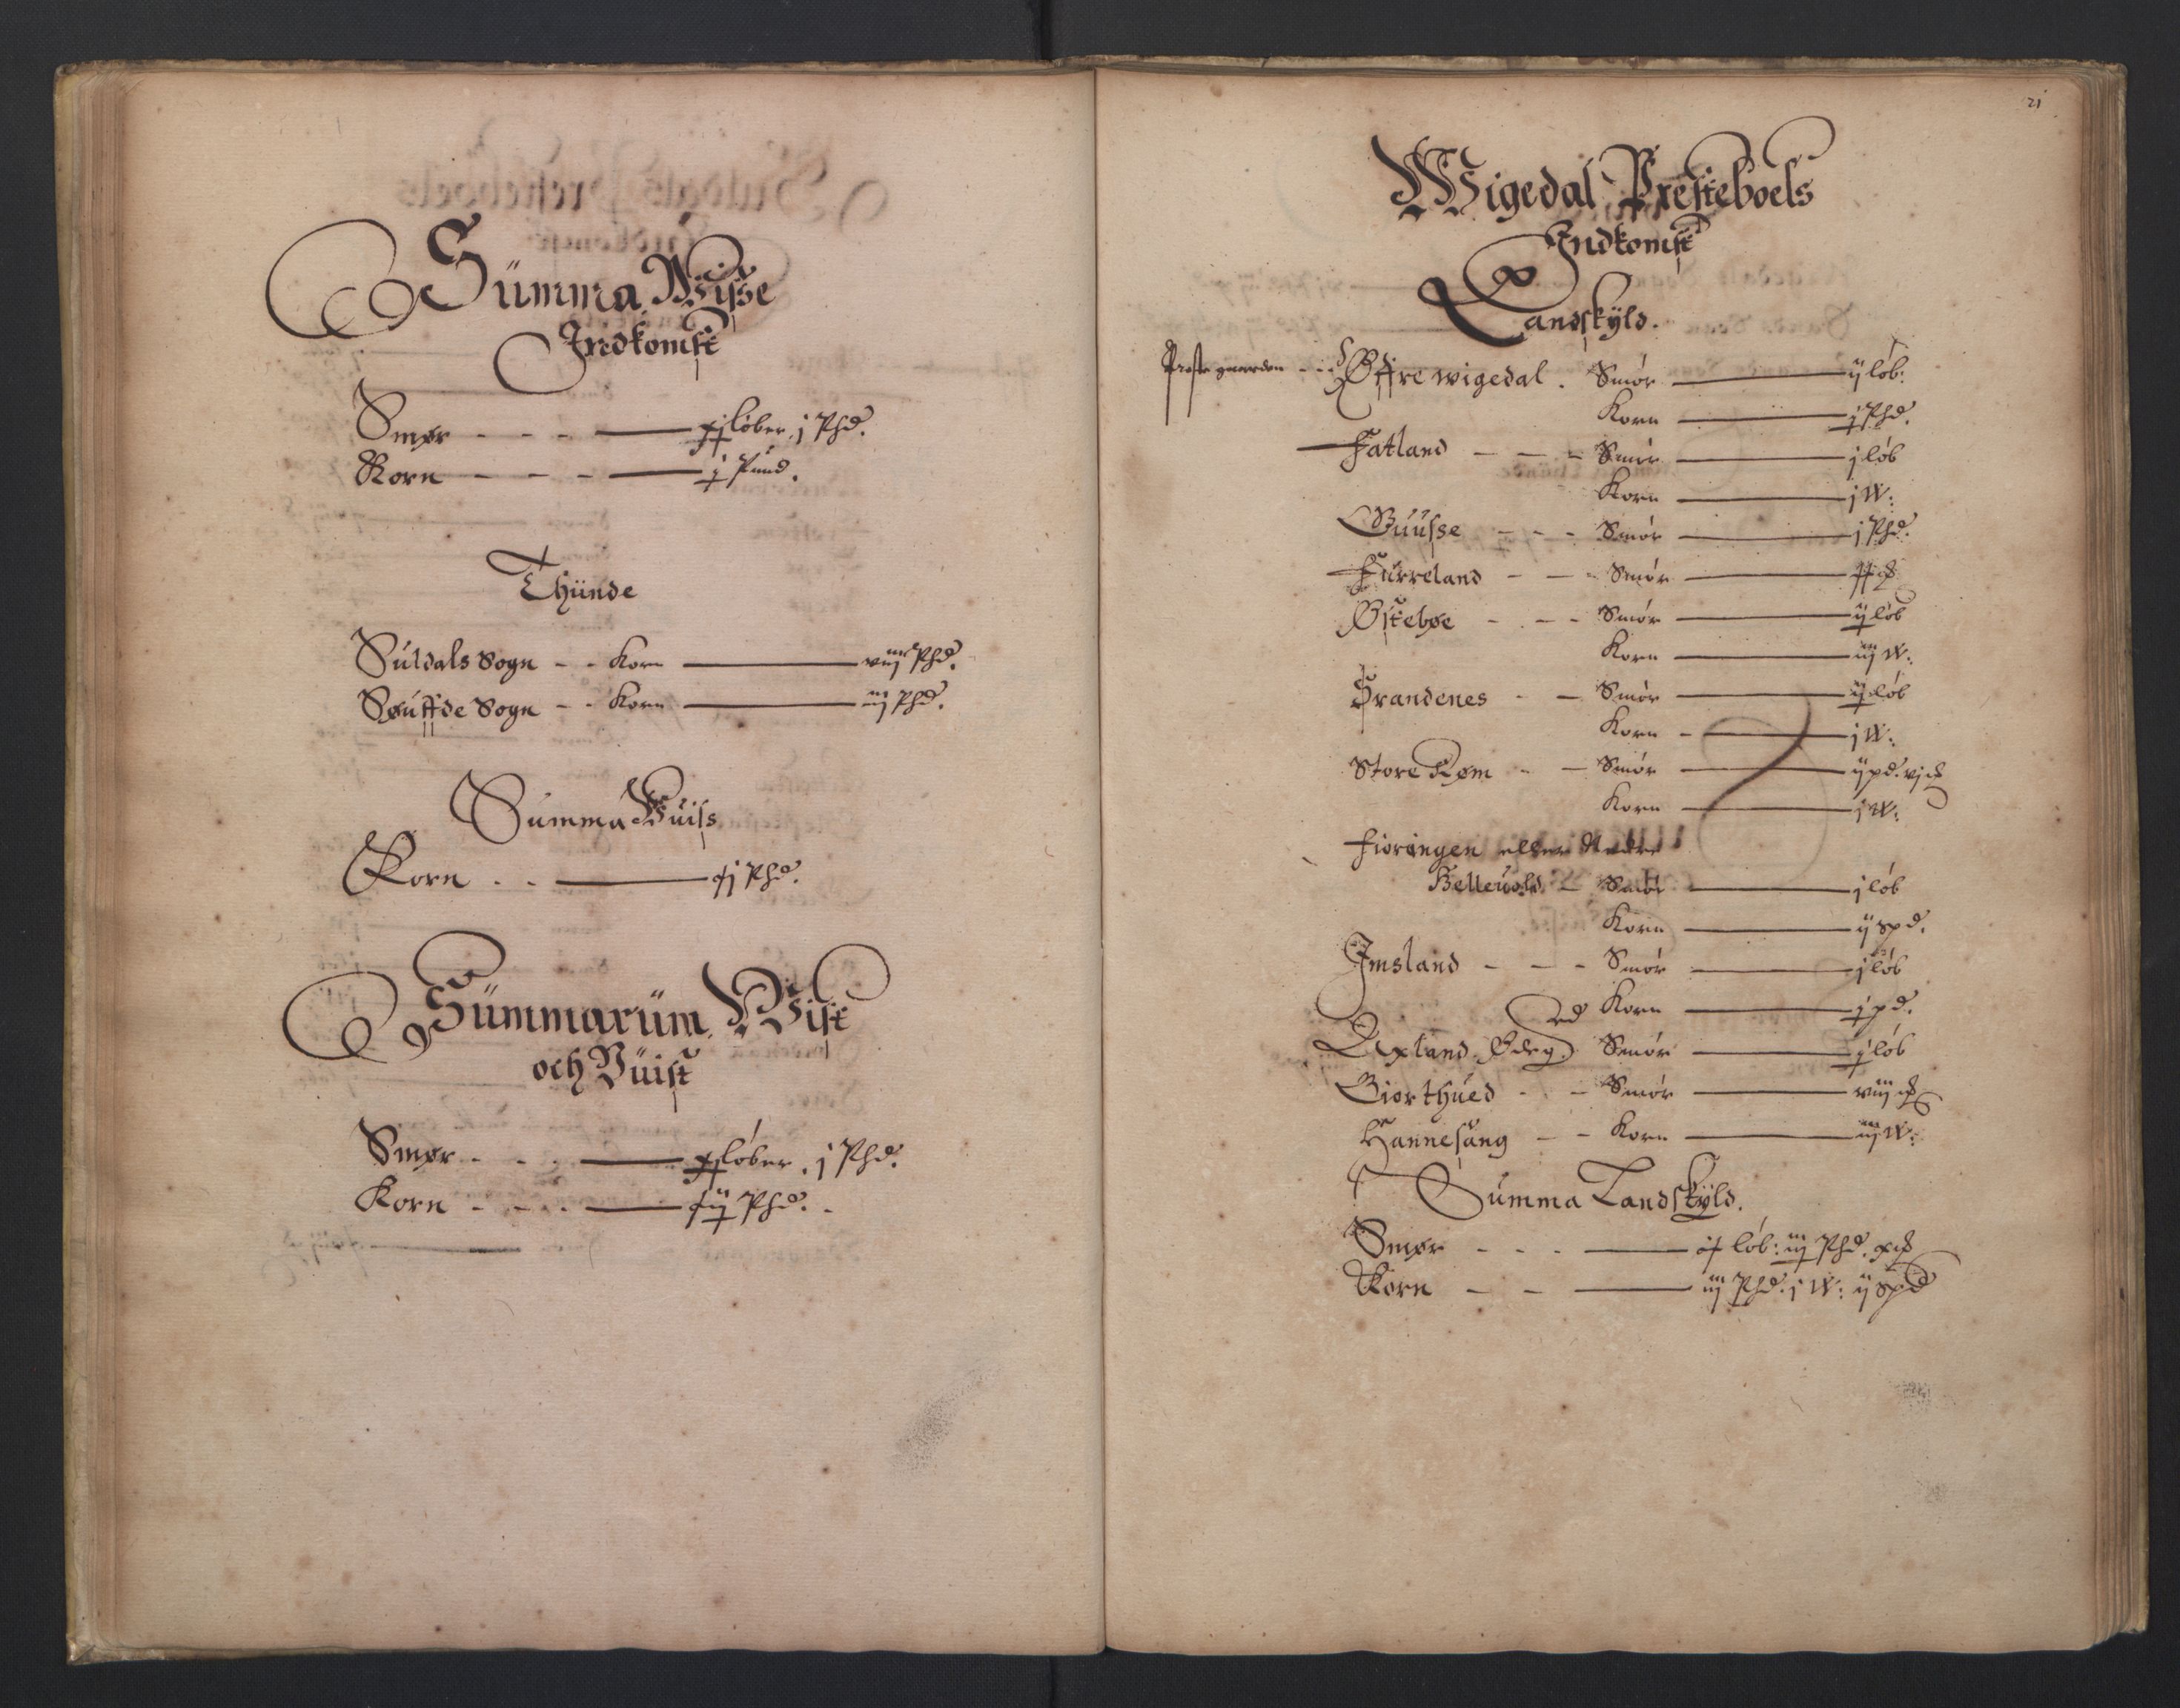 Summa Wisse
Indkomst
Smør - - - xj løber. j Phd.
Korn - - - j Pund.
Thiinde
Suldals Sogn - - Korn viij Phd.
Souffde Sogn - - Korn iij Phd.
Summa Wuiss
Korn - - xj Phd.
Summarum Wist
och Vuist
Smør - - - løber. j Phd.
Korn - - - Phd.
21
Wigedal Presteboels
Indkomst
Landskyld.
Prestegaarden - - Øffre wigedal. Smør ij løb:
Korn j Phd.
Fatland - - - Smør j løb
Korn j W:
Guusse - - - Smør j Phd.
Furreland - - - Smør
Østebøe - - - Smør ij løb
Korn iij W:
Brandenes - - Smør ij løb
Korn - j W:
Store Røm - - Smør ij pd. vj
Korn j W:
Fioringen eller Nedre
Belleuold - Smør j løb
Korn ij spd.
Imsland - - - Smør j løb
Korn j pd.
Øxland. Ødeg. Smør j løb
Giorthued - - Smør viij
Hannesang - - Korn iij W:
Summa Landskyld.
Smør - - - løb: iij Phd.
Korn - - iij Phd. j W: ij spd